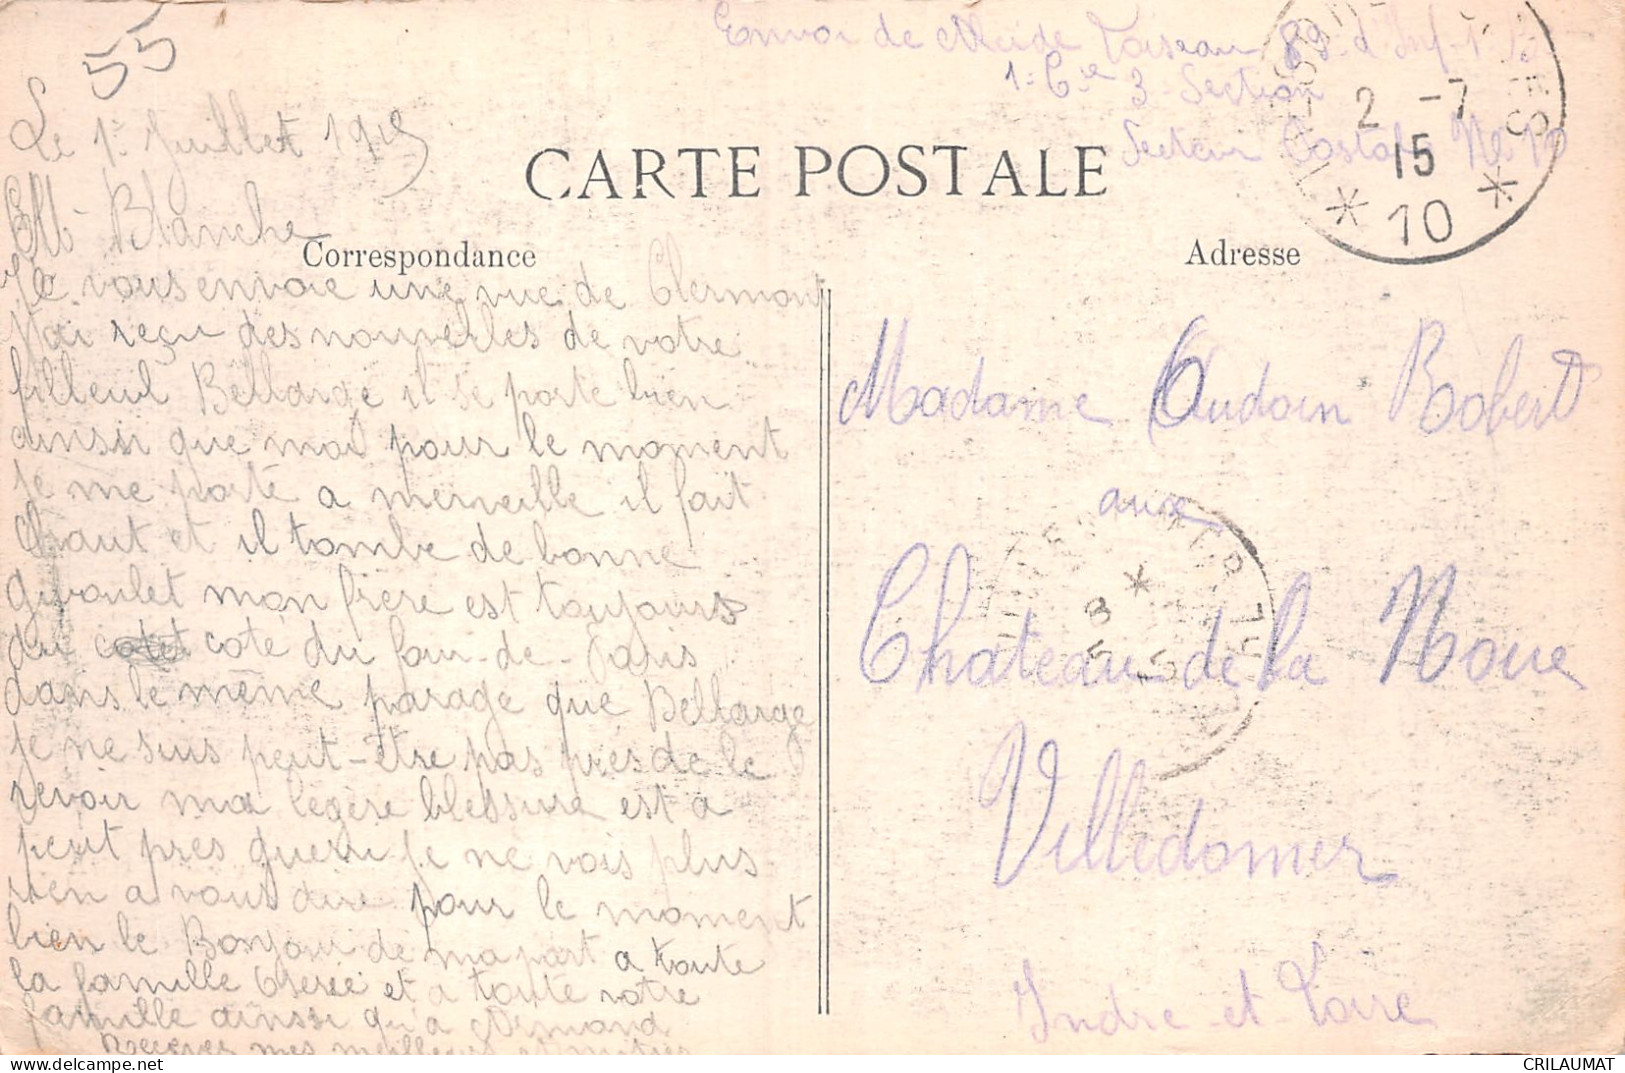 55
Envoi de Alcide Loiseau 89. d'Inf-1. B.
1. Cie 3. Section
Secteur Postal No 10
2 -7
15
* 10 *
Le 1er Juillet 1915
CARTE POSTALE
Mme Blanche
Correspondance
Adresse
Je vous envoie une vue de Clermont
J'ai reçu des nouvelles de votre
filleul Bellarge il se porte bien
ainssi que moi pour le moment
je me porte a merveille il fait
chaut et il tombe de bonne
giboulet mon frère est toujours
du coté du four-de-Paris
dans le même parage que Bellarge
je ne suis peut-être pas près de le
revoir ma légère blessure est a
peut près guerri je ne vois plus
rien a vous dire pour le moment
bien le Bonjour de ma part a toute
la famille et a toute votre
famille ainssi qu'a Armand
Recevez mes meilleurs amitiés
Madame Audoin Robert
aux
Chateau de la Noue
Villedomer
Indre-et-Loire
CRILAUMAT